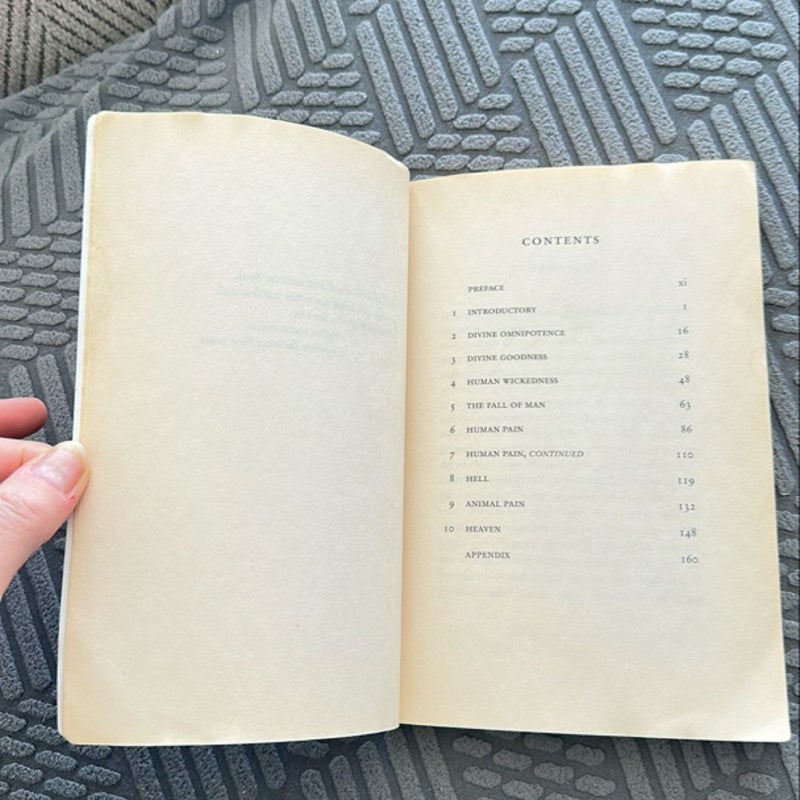 CONTENTS
PREFACE xi
1 INTRODUCTORY 1
2 DIVINE OMNIPOTENCE 16
3 DIVINE GOODNESS 28
4 HUMAN WICKEDNESS 48
5 THE FALL OF MAN 63
6 HUMAN PAIN 86
7 HUMAN PAIN, CONTINUED 110
8 HELL 119
9 ANIMAL PAIN 132
10 HEAVEN 148
APPENDIX 160